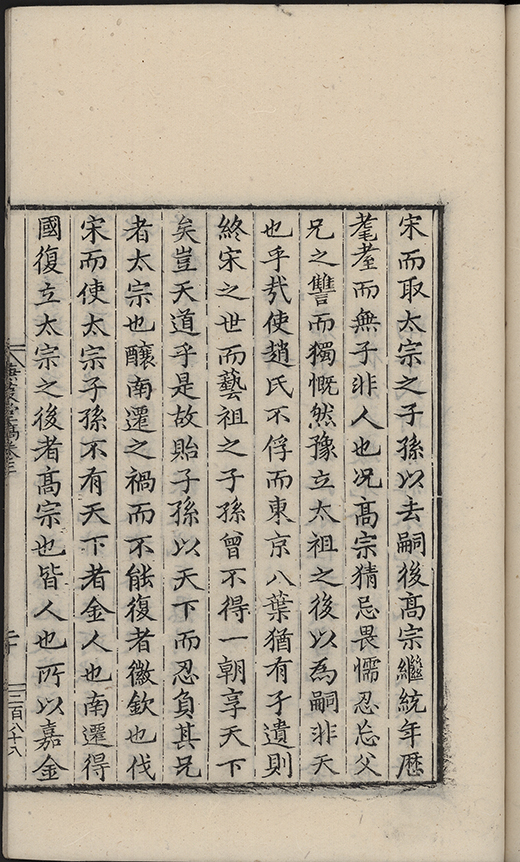 宋而取太宗之子孫以去嗣後髙宗繼統年歴
耄耋而無子非人也况髙宗猜忌畏懦忍忘父
兄之讐而獨慨然豫立太祖之後以為嗣非天
也乎㢤使趙氏不俘而東京八葉猶有孑遺則
終宋之世而藝祖之子孫曾不得一朝享天下
矣豈天道乎是故貽子孫以天下而忍負其兄
者太宗也釀南遷之禍而不能復者徽欽也伐
宋而使太宗子孫不有天下者金人也南遷得
國復立太宗之後者髙宗也皆人也所以嘉金
堂稿卷三
二百八十八